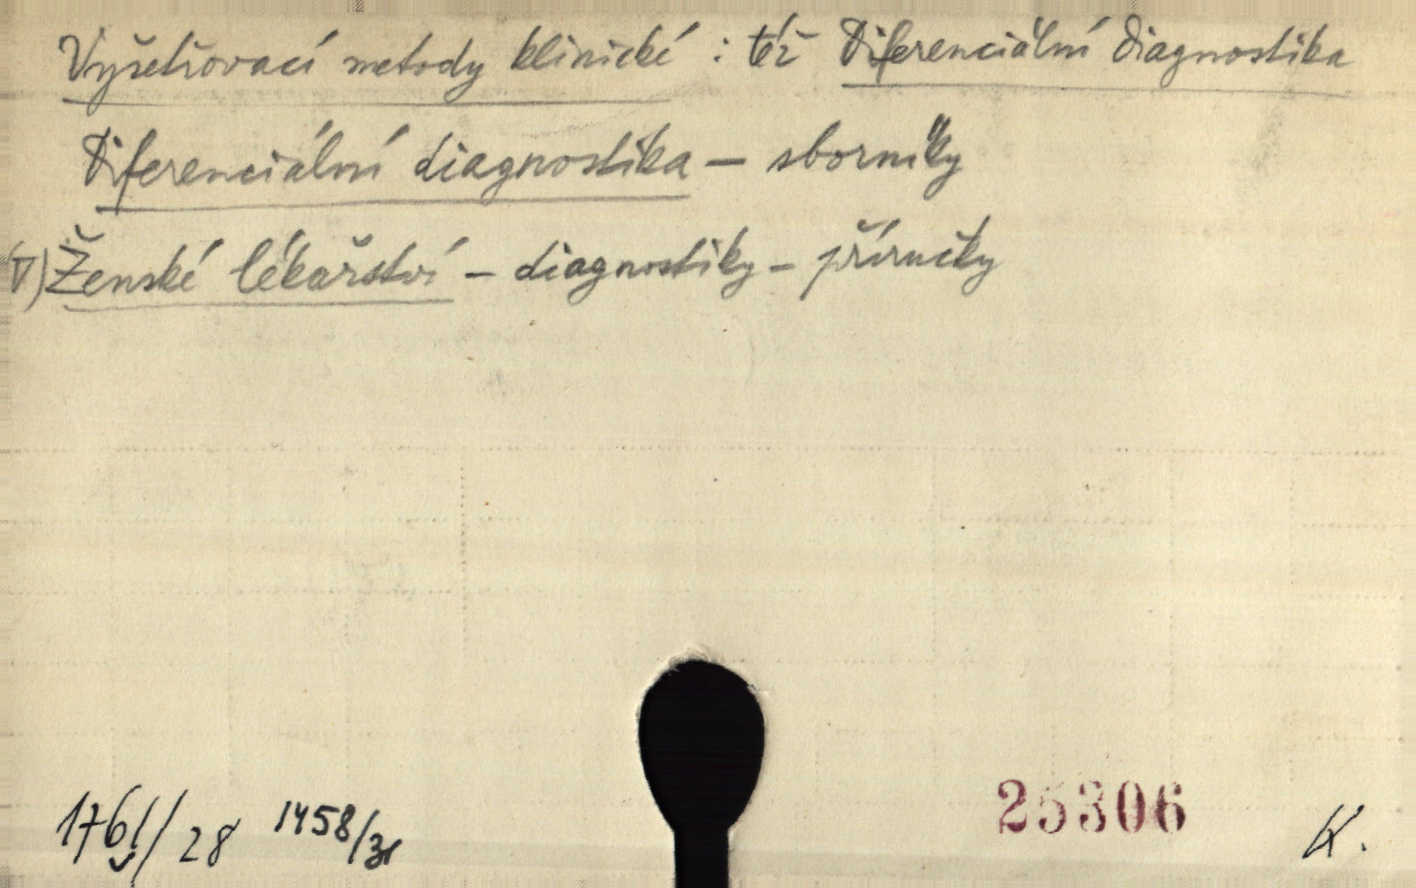 Vyšetřovací metody klinické : též Diferenciální diagnostika
Diferenciální diagnostika – sborníky
V) Ženské lékařství – diagnostiky – příručky
1761/28 1458/31 25306 K.